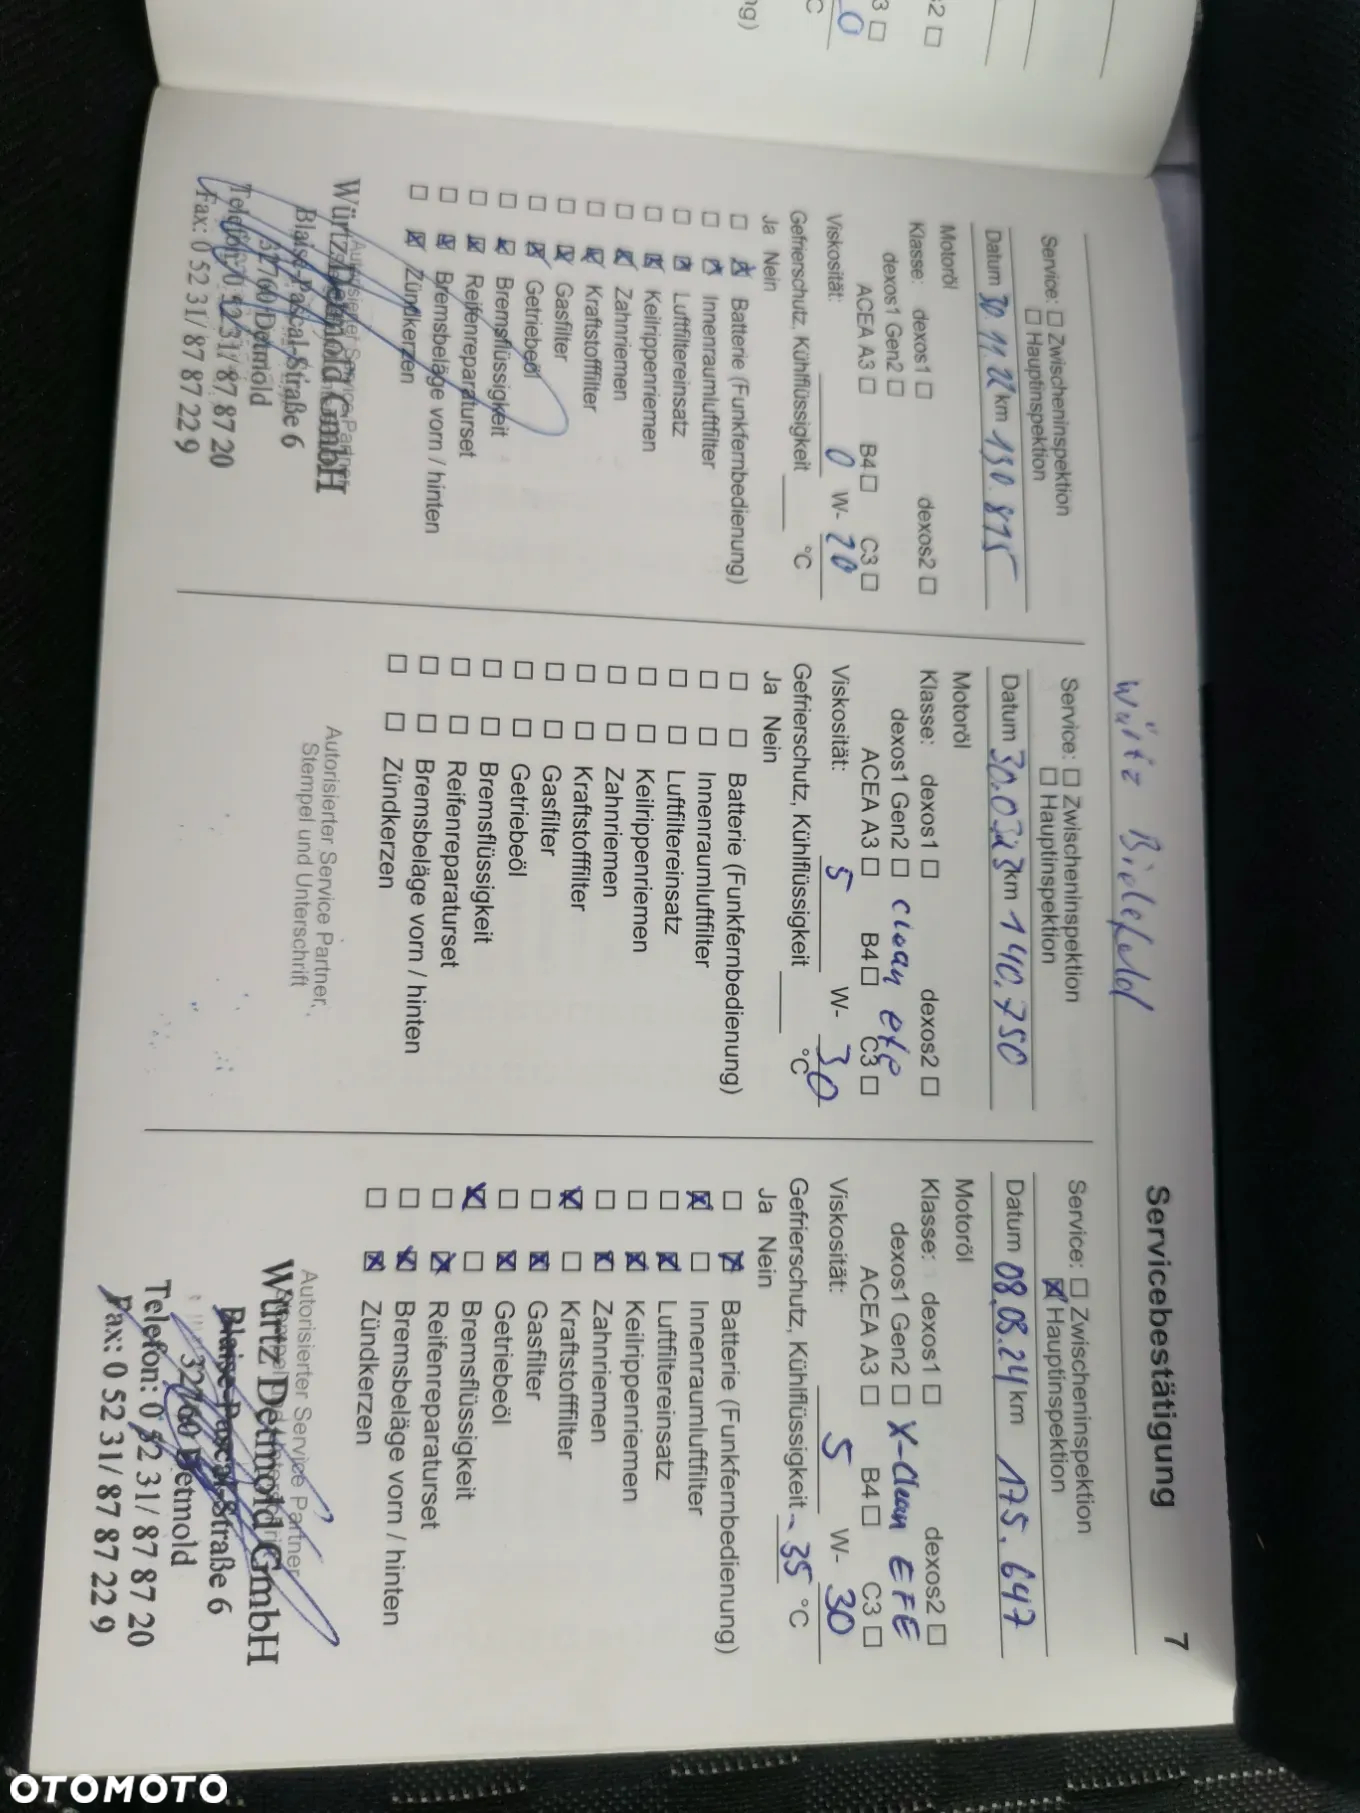 Servicebestätigung 7
Würtz Bielefeld
Service: ☐ Zwischeninspektion
☐ Hauptinspektion
Datum 30.11.22 km 130.815
Motoröl
Klasse: dexos1 ☐ dexos2 ☐
dexos1 Gen2 ☐
ACEA A3 ☐ B4 ☐ C3 ☐
Viskosität: 0 W- 20
Gefrierschutz, Kühlflüssigkeit °C
Ja Nein
☐ ☒ Batterie (Funkfernbedienung)
☐ ☒ Innenraumluftfilter
☐ ☒ Luftfiltereinsatz
☐ ☒ Keilrippenriemen
☐ ☒ Zahnriemen
☐ ☒ Kraftstofffilter
☐ ☒ Gasfilter
☐ ☒ Getriebeöl
☐ ☒ Bremsflüssigkeit
☐ ☒ Reifenreparaturset
☐ ☒ Bremsbeläge vorn / hinten
☐ ☒ Zündkerzen
Autorisierter Service Partner,
Würtz Detmold GmbH
Blaise-Pascal-Straße 6
32760 Detmold
Telefon: 0 52 31/ 87 87 20
Fax: 0 52 31/ 87 87 22 9
Service: ☐ Zwischeninspektion
☐ Hauptinspektion
Datum 30.03.23 km 140.750
Motoröl
Klasse: dexos1 ☐ dexos2 ☐
dexos1 Gen2 ☐ clean efe
ACEA A3 ☐ B4 ☐ C3 ☐
Viskosität: 5 W- 30
Gefrierschutz, Kühlflüssigkeit °C
Ja Nein
☐ ☐ Batterie (Funkfernbedienung)
☐ ☐ Innenraumluftfilter
☐ ☐ Luftfiltereinsatz
☐ ☐ Keilrippenriemen
☐ ☐ Zahnriemen
☐ ☐ Kraftstofffilter
☐ ☐ Gasfilter
☐ ☐ Getriebeöl
☐ ☐ Bremsflüssigkeit
☐ ☐ Reifenreparaturset
☐ ☐ Bremsbeläge vorn / hinten
☐ ☐ Zündkerzen
Autorisierter Service Partner,
Stempel und Unterschrift
Service: ☐ Zwischeninspektion
☒ Hauptinspektion
Datum 08.03.24 km 175.647
Motoröl
Klasse: dexos1 ☐ dexos2 ☐
dexos1 Gen2 ☐ X-Clean EFE
ACEA A3 ☐ B4 ☐ C3 ☐
Viskosität: 5 W- 30
Gefrierschutz, Kühlflüssigkeit -35 °C
Ja Nein
☐ ☒ Batterie (Funkfernbedienung)
☒ ☐ Innenraumluftfilter
☐ ☒ Luftfiltereinsatz
☐ ☒ Keilrippenriemen
☐ ☒ Zahnriemen
☒ ☐ Kraftstofffilter
☐ ☒ Gasfilter
☐ ☒ Getriebeöl
☒ ☐ Bremsflüssigkeit
☐ ☒ Reifenreparaturset
☐ ☒ Bremsbeläge vorn / hinten
☐ ☒ Zündkerzen
Autorisierter Service Partner,
Würtz Detmold GmbH
Blaise-Pascal-Straße 6
32760 Detmold
Telefon: 0 52 31/ 87 87 20
Fax: 0 52 31/ 87 87 22 9
OTOMOTO